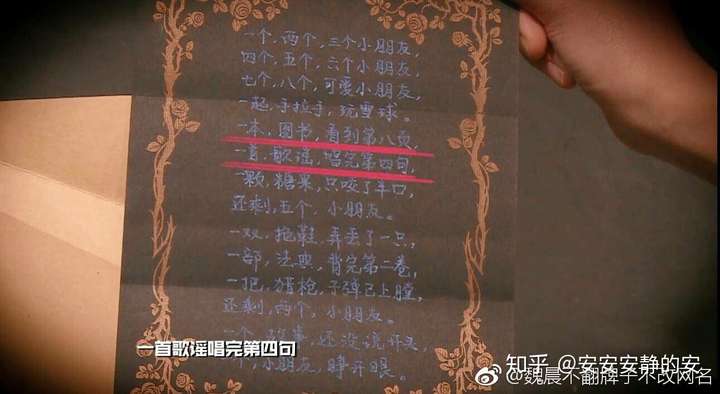 一个,两个,三个小朋友,
四个,五个,六个小朋友,
七个,八个,可爱小朋友,
一起,手拉手,玩雪球。
一本,图书,看到第八页,
一首,歌谣,唱完第四句,
一颗,糖果,只咬了半口,
还剩,五个,小朋友。
一双,拖鞋,弄丢了一只,
一部,法典,背完第二卷,
一把,猎枪,子弹已上膛,
还剩,两个,小朋友。
一个,故事,还没说开头,
个,小朋友,睁开眼。
一首歌谣唱完第四句
知乎 @安安安静的安
@魏晨不翻牌子不改网名